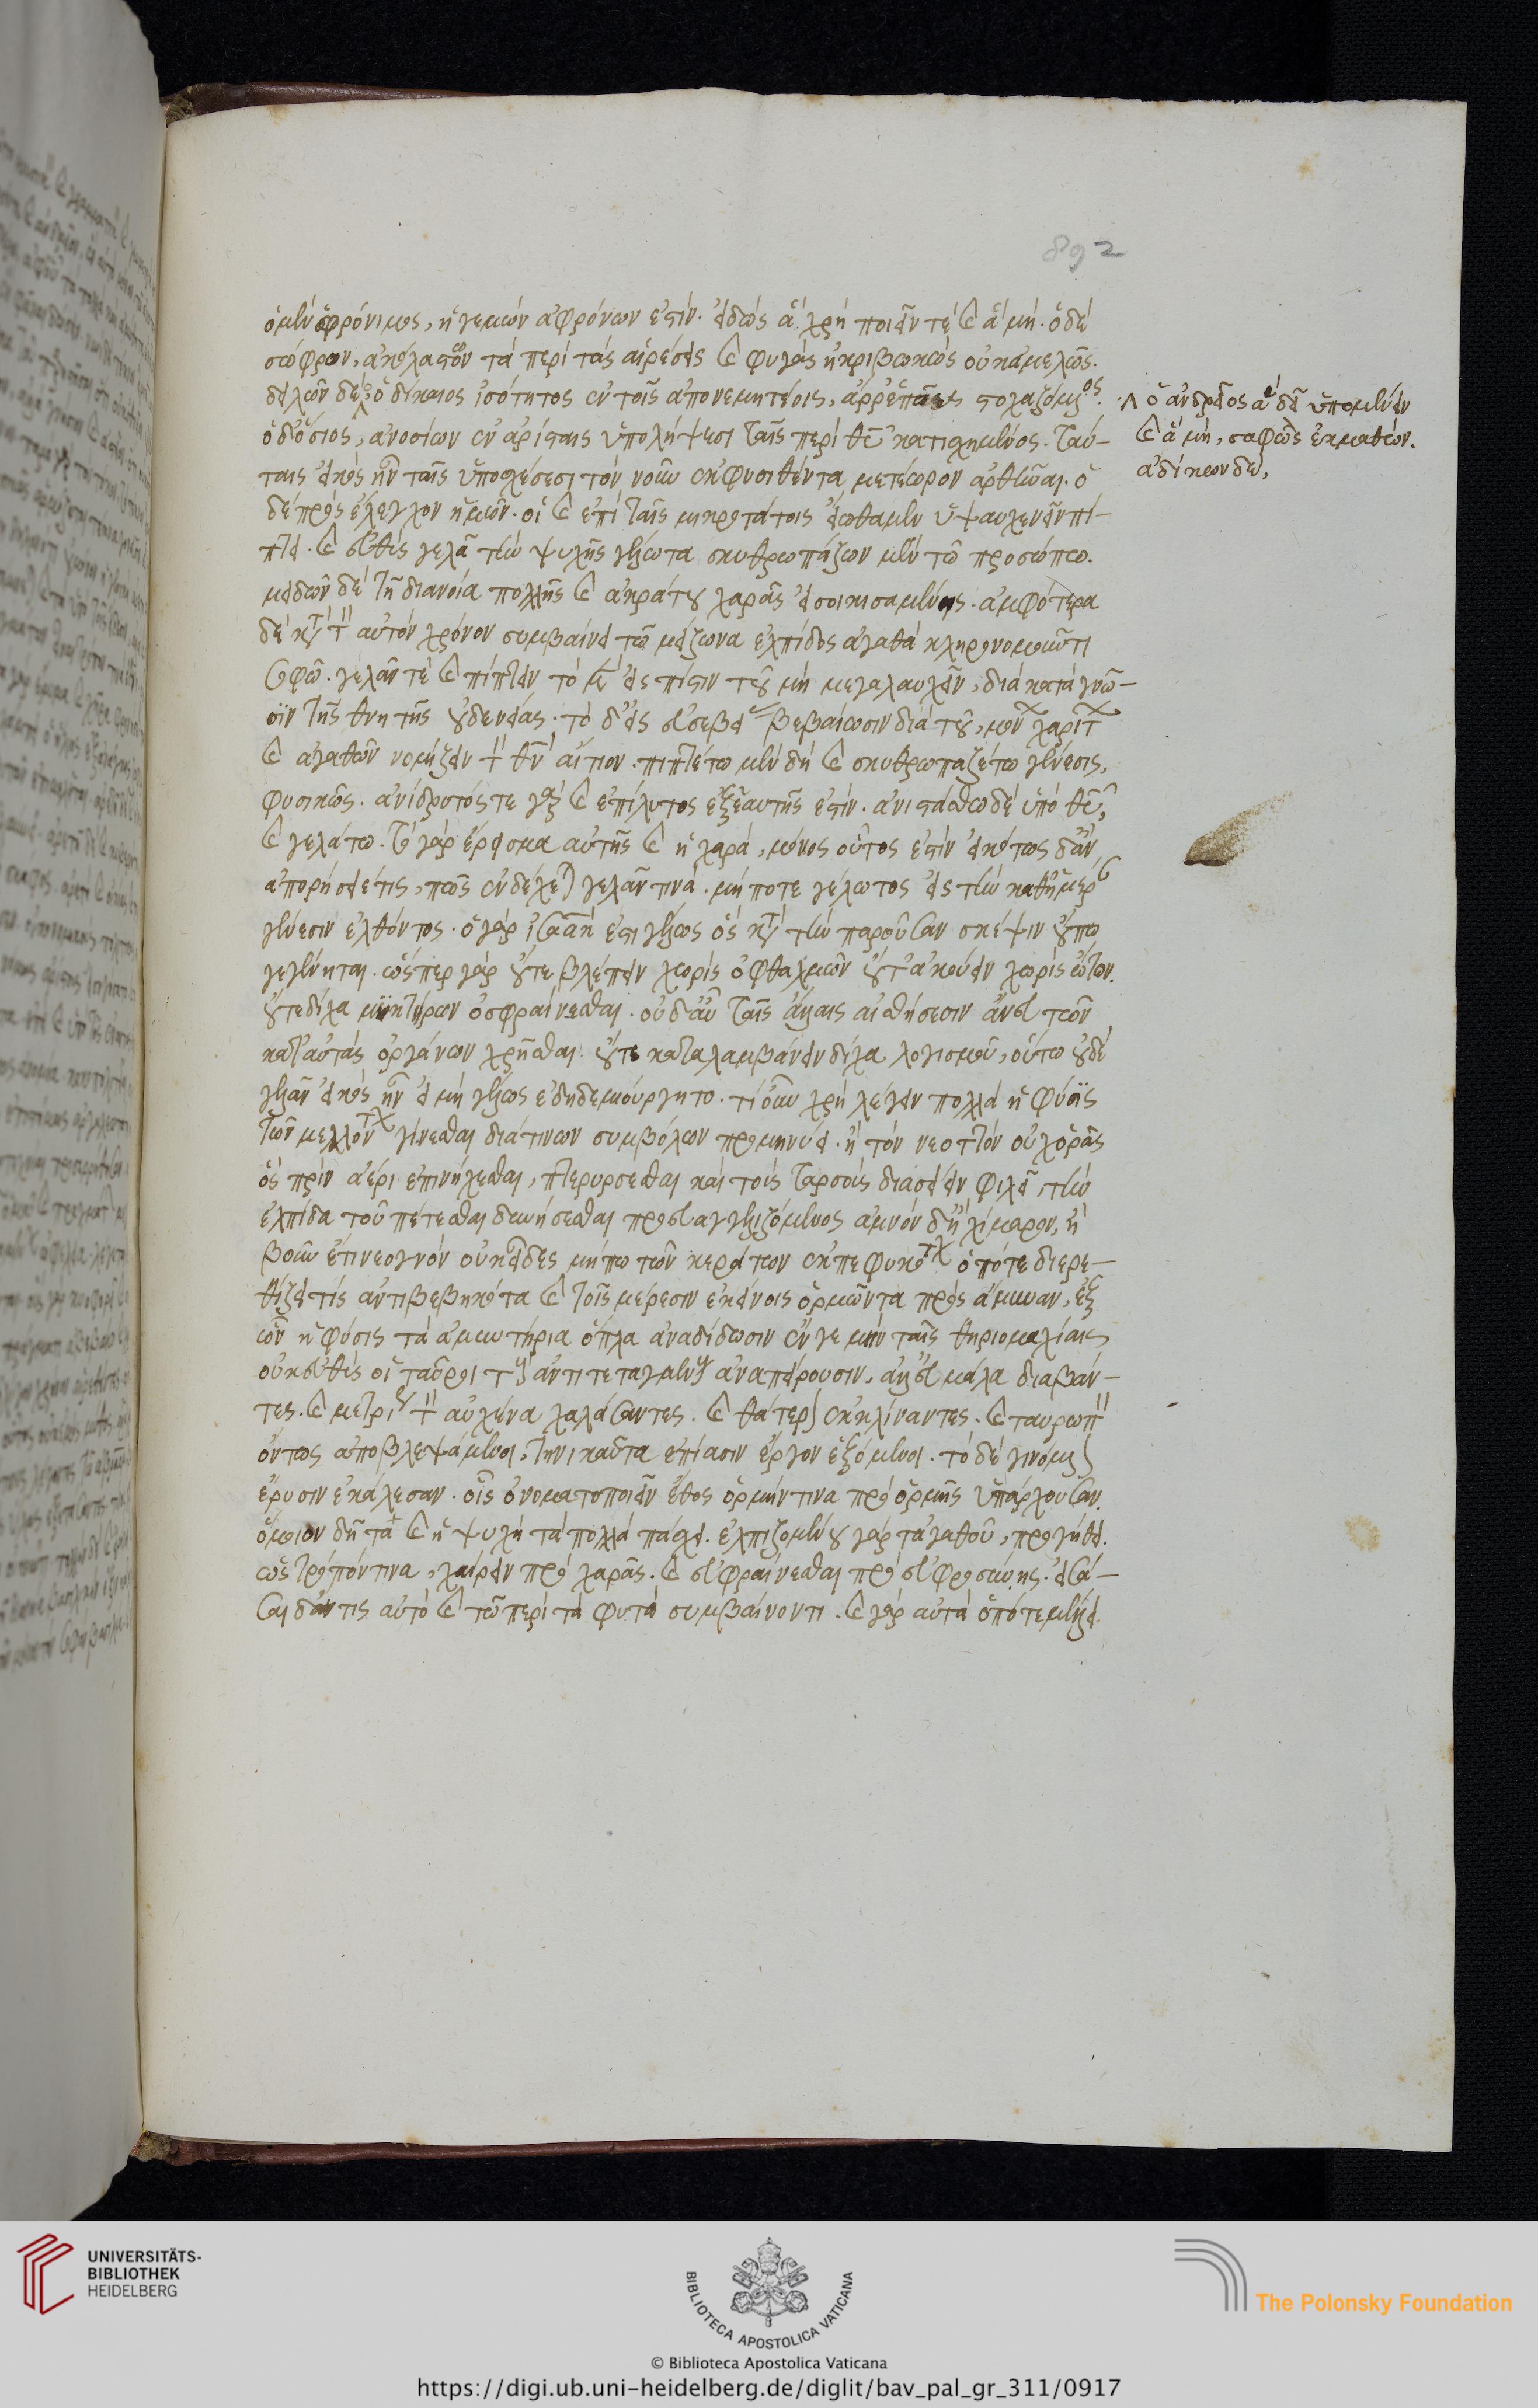 892
ὁ μὲν φρόνιμος, ἡγεμὼν ἀφρόνων ἐστὶν. εἰδὼς ἃ χρὴ ποιεῖν τὲ καὶ ἃ μή. ὁ δὲ
σώφρων, ἀκολάστων τὰ περὶ τὰς αἱρέσεις καὶ φυγὰς ἠκριβωκὼς οὐκ ἀμελῶς.
δειλῶν δὲ ὁ δίκαιος ἰσότητος ἐν τοῖς ἀπονεμητέοις, στοχαζόμενος.
ὁ δ' ὅσιος, ἀνοσίων ἐν ἀρίσταις ὑπολήψεσι ταῖς περὶ θεοῦ κατισχημένος. ταύ-
ταις εἰκὸς ἦν ταῖς ὑποσχέσεσι τὸν νοῦν ἐκφυσιθέντα μετέωρον ἀρθῆναι. ὁ
δὲ πρὸς ἔλεγχον ἡμῶν. οἳ καὶ ἐπὶ ταῖς μικροτάτοις εἰώθαμεν ὑψαυχενεῖν πί-
πτει. καὶ εὐθὺς γελᾷ τὸν ψυχῆς γέλωτα σκυθρωπάζων μὲν τῷ προσώπῳ.
μειδιῶν δὲ τῇ διανοίᾳ πολλῆς καὶ ἀκράτου χαρᾶς εἰσοικισαμένης. ἀμφότερα
δὲ κατὰ τὸν αὐτὸν χρόνον συμβαίνει τῷ μείζονα ἐλπίδος ἀγαθὰ κληρονομοῦντι
σοφῷ. γελᾶν τὲ καὶ πίπτειν τὸ μὲν εἰς πίστιν τοῦ μὴ μεγαλαυχεῖν, διὰ κατάγνω-
σιν τῆς θνητῆς οὐδενείας. τὸ δ' εἰς εὐσεβείας βεβαίωσιν διὰ τοῦ, μόνον χαρίτων
καὶ ἀγαθῶν νομίζειν τὸν θεὸν αἴτιον. πιπτέτω μὲν δὴ καὶ σκυθρωπαζέτω γένεσις,
φυσικῶς. ἀνίδρυτός τε γὰρ καὶ ἐπίλυπος ἐξ ἑαυτῆς ἐστίν. ἀνιστάσθω δὲ ὑπὸ θεοῦ,
καὶ γελάτω. τὸ γὰρ ἔρεισμα αὐτῆς καὶ ἡ χαρὰ, μόνος οὗτος ἐστὶν εἰκότως δ' ἂν
ἀπορήσειέ τις, πῶς ἐνδέχεται γελᾶν τινὰ. μήποτε γέλωτος εἰς τὴν καθ' ἡμᾶς
γένεσιν ἐλθόντος. ὁ γὰρ ἰσαάκ ἐστι γέλως ὃς κατὰ τὴν παροῦσαν σκέψιν οὔπω
γεγένηται. ὥσπερ γὰρ οὔτε βλέπειν χωρὶς ὀφθαλμῶν οὔτ' ἀκούειν χωρὶς ὤτων.
οὔτε δίχα μυκτήρων ὀσφραίνεσθαι. οὐδ' αὖ ταῖς ἄλλαις αἰσθήσεσιν ἄνευ τῶν
κατ' αὐτὰς ὀργάνων χρῆσθαι. οὔτε καταλαμβάνειν δίχα λογισμοῦ, οὕτω οὐδὲ
γελᾶν εἰκὸς ἦν εἰ μὴ γέλως ἐδημιούργητο. τί οὖν χρὴ λέγειν πολλὰ ἡ φύσις
τῶν μελλόντων γίνεσθαι διά τινων συμβόλων προμηνύει. ἢ τὸν νεοττὸν οὐχ ὁρᾷς
ὃς πρὶν ἀέρι ἐπινήχεσθαι, πτερύσσεσθαι καὶ τοὺς ταρσοὺς διασείειν φιλεῖ, τὴν
ἐλπίδα τοῦ πέτεσθαι δυνήσεσθαι προευαγγελιζόμενος ἀμνὸν δ' ἢ χίμαρον, ἢ
βοῦν ἔτι νεογνὸν οὐκ εἶδες μήπω τῶν κεράτων ἐκπεφυκότων ὁπότε διερε-
θίζει τίς ἀντιβεβηκότα καὶ τοῖς μέρεσιν ἐκείνοις ὁρμῶντα πρὸς ἄμυναν, ἐξ
ὧν ἡ φύσις τὰ ἀμυντήρια ὅπλα ἀναδίδωσιν ἔν γε μὴν ταῖς θηριομαχίαις
οὐκ εὐθὺς οἱ ταῦροι τοὺς ἀντιτεταγμένους ἀναπείρουσιν, ἀλλ' εὖ μάλα διαβάν-
τες. καὶ μετρίως τὸν αὐχένα χαλάσαντες. καὶ θάτερον ἐκκλίναντες. καὶ ταυρωπὸν
ὄντως ἀποβλεψάμενοι. τηνικαῦτα ἐπίασιν ἔργου ἑξόμενοι. τὸ δὲ γινόμενον
ἔρυσιν ἐκάλεσαν. οἷς ὀνοματοποιεῖν ἔθος ὁρμήν τινα πρὸ ὁρμῆς ὑπάρχουσαν.
ὅμοιον δή τι καὶ ἡ ψυχὴ τὰ πολλὰ πάσχει. ἐλπιζομένου γὰρ τἀγαθοῦ, προγήθει.
ὡς τρόπόν τινα, χαίρειν πρὸ χαρᾶς. καὶ εὐφραίνεσθαι πρὸ εὐφροσύνης. εἰκά-
σαι δ' ἄν τις αὐτὸ καὶ τῷ περὶ τὰ φυτὰ συμβαίνοντι. καὶ γὰρ αὐτὰ ὁπότε μέλλει
ὁ ἀνδρεῖος ἃ δεῖ ὑπομένειν
καὶ ἃ μή, σαφῶς ἐκμαθών.
ἀδίκων δὲ,
UNIVERSITÄTS-
BIBLIOTHEK
HEIDELBERG
BIBLIOTECA APOSTOLICA VATICANA
© Biblioteca Apostolica Vaticana
The Polonsky Foundation
https://digi.ub.uni-heidelberg.de/diglit/bav_pal_gr_311/0917